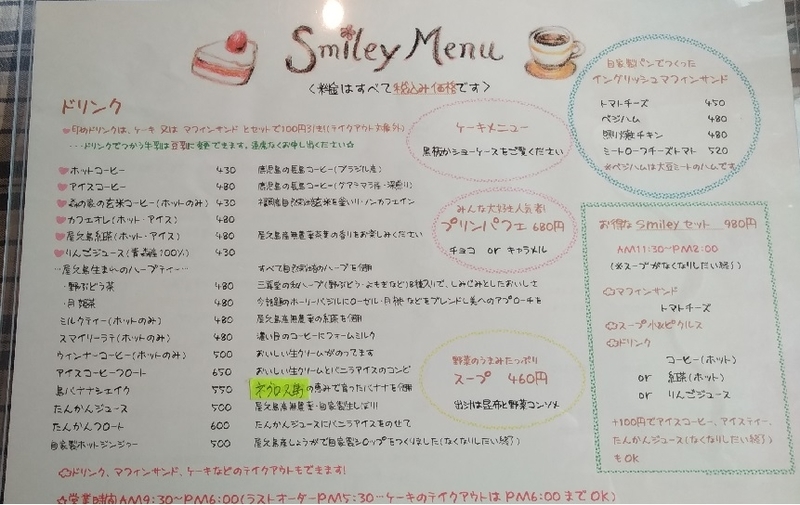 Smiley Menu
〈料金はすべて税込み価格です〉
ドリンク
♥印のドリンクは、ケーキ 又は マフィンサンド とセットで100円引き!(テイクアウト対象外)
・・・ドリンクでつかう牛乳は豆乳に変更できます。遠慮なくお申し出ください☆
♥ホットコーヒー 430 鹿児島の
♥アイスコーヒー 480 鹿児島の
♥森の家の玄米コーヒー(ホットのみ) 430 ノンカフェイン
♥カフェオレ(ホット・アイス) 480
♥屋久島紅茶(ホット・アイス) 480 屋久島産無農薬茶葉の香りをお楽しみください
♥りんごジュース(青森産100%) 430
…屋久島生まれのハーブティー… すべて自然栽培のハーブを使用
・野ぶどう茶 480
・月桃茶 480
ミルクティー(ホットのみ) 480 屋久島産無農薬の紅茶を使用
スマイリーラテ(ホットのみ) 480 濃い目のコーヒーにフォームミルク
ウィンナーコーヒー(ホットのみ) 500 おいしい生クリームがのってます
アイスコーヒーフロート 650 おいしい生クリームとバニラアイスのコンビ
島バナナシェイク 550 ネグロス島の恵みで育ったバナナを使用
たんかんジュース 500 屋久島産無農薬・自家製生しぼり!!
たんかんフロート 600 たんかんジュースにバニラアイスをのせて
自家製ホットジンジャー 500 屋久島産しょうがで自家製シロップをつくりました(なくなりしだい終了)
ドリンク、マフィンサンド、ケーキなどのテイクアウトもできます!
☆営業時間 AM9:30~PM6:00(ラストオーダーPM5:30…ケーキのテイクアウトは PM6:00までOK)
ケーキメニュー
黒板かショーケースをご覧ください
みんな大好き人気者!
プリンパフェ 680円
チョコ or キャラメル
野菜のうまみたっぷり
スープ 460円
出汁は昆布と野菜コンソメ
自家製パンでつくった
イングリッシュマフィンサンド
トマトチーズ 450
ベジハム 480
照り焼きチキン 480
ミートローフチーズトマト 520
*ベジハムは大豆ミートのハムです
お得な Smileyセット 980円
AM11:30~PM2:00
(*スープがなくなりしだい終了)
マフィンサンド
トマトチーズ
スープ小&ピクルス
ドリンク
コーヒー(ホット)
or 紅茶(ホット)
or りんごジュース
+100円でアイスコーヒー、アイスティー、
たんかんジュース(なくなりしだい終了)
もOK